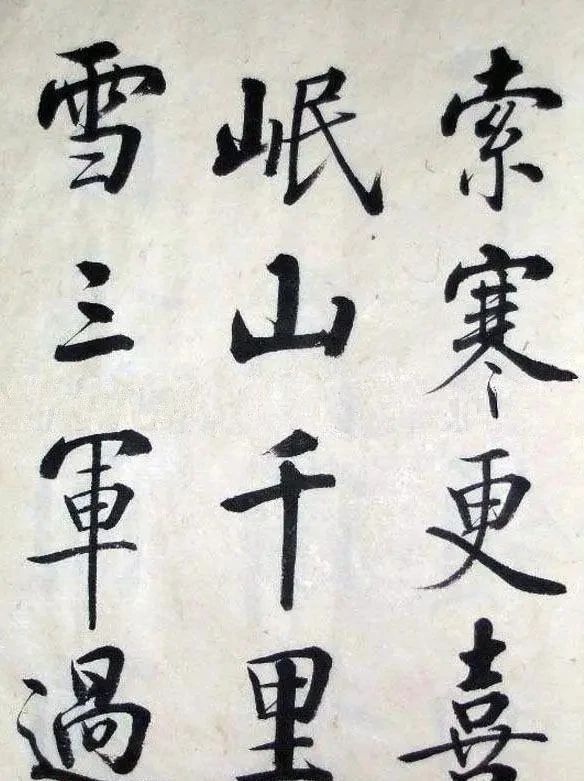 索寒更喜
岷山千里
雪三軍過